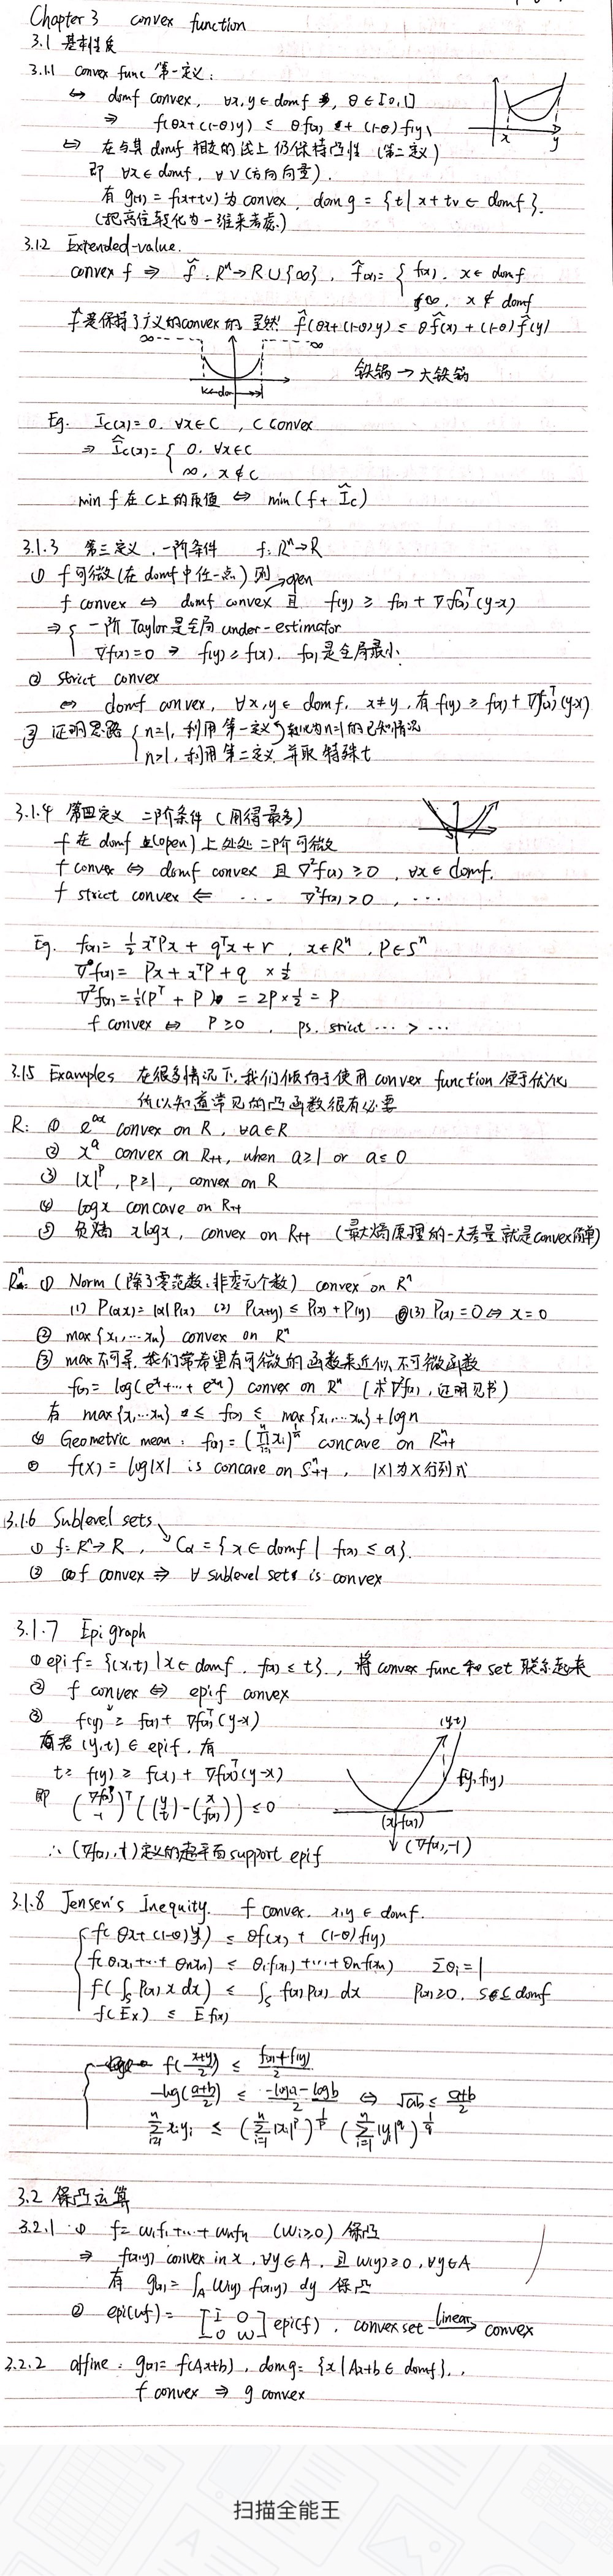 Chapter 3 convex function
3.1 基本性质
3.1.1 convex func 第一定义:
⇔ domf convex, ∀x,y ∈ domf, θ∈[0,1]
⇒ f(θx+(1-θ)y) ≤ θf(x) + (1-θ)f(y)
⇔ 在与其 domf 相交的线上仍保持凸性 (第二定义)
即 ∀x∈domf, ∀v(方向向量).
有 g(t) = f(x+tv) 为 convex, dom g = {t | x+tv ∈ domf}.
(把高维转化为一维来考虑.)
x y
3.1.2 Extended-value.
convex f ⇒ f̃: Rⁿ→R∪{∞}, f̃(x) = { f(x), x∈domf
∞, x∉domf
f̃是保持了f定义的convex的 显然 f̃(θx+(1-θ)y) ≤ θf̃(x)+(1-θ)f̃(y)
∞ ∞
dom
铁锅 → 大铁锅
Eg. Ic(x)=0. ∀x∈C, C convex
⇒ Ĩc(x)= { 0. ∀x∈C
∞, x∉C
min f 在C上的取值 ⇔ min(f+Ĩc)
3.1.3 第三定义, 一阶条件 f: Rⁿ→R
① f可微(在domf中任一点)则 →open
f convex ⇔ domf convex 且 f(y) ≥ f(x)+∇f(x)ᵀ(y-x)
⇒ { 一阶 Taylor 是全局 under-estimator
∇f(x)=0 ⇒ f(y)≥f(x). f(x)是全局最小.
② strict convex
⇔ domf convex, ∀x,y∈domf, x≠y, 有f(y)≥f(x)+∇f(x)ᵀ(y-x)
③ 证明思路 { n=1, 利用第一定义 转化为n=1的已知情况
n>1, 利用第二定义 并取特殊t
3.1.4 第四定义 二阶条件 (用得最多)
f 在 domf (open) 上处处二阶可微
f convex ⇔ domf convex 且 ∇²f(x)≥0, ∀x∈domf.
f strict convex ⇐ ... ∇²f(x)>0, ...
Eg. f(x)=½xᵀPx+qᵀx+r, x∈Rⁿ, P∈Sⁿ
∇f(x)= Px+xᵀP+q ×½
∇²f(x)=½(Pᵀ+P) = 2P×½ = P
f convex ⇔ P≥0, ps. strict ... > ...
3.1.5 Examples 在很多情况下, 我们倾向于使用 convex function 便于优化
所以知道常见的凸函数很有必要
R: ① e^ax convex on R, ∀a∈R
② x^a convex on R++, when a≥1 or a≤0
③ |x|^p, p≥1, convex on R
④ log x concave on R++
⑤ 负熵 xlogx, convex on R++ (最大熵原理的一大考量就是convex简单)
Rⁿ: ① Norm (除了零范数, 非零元个数) convex on Rⁿ
(1) P(αx)=|α|P(x) (2) P(x+y)≤P(x)+P(y) (3) P(x)=0⇔x=0
② max{x₁,...xₙ} convex on Rⁿ
③ max不可导, 我们常希望有可微的函数来近似不可微函数
f(x)=log(e^x₁+...+e^xₙ) convex on Rⁿ (求∇²f(x), 证明见书)
有 max{x₁,...xₙ} ≤ f(x) ≤ max{x₁,...xₙ}+log n
④ Geometric mean: f(x)=(∏ᵢ₌₁ⁿ xᵢ)^(1/n) concave on Rⁿ++
⑤ f(X)=log|X| is concave on Sⁿ++, |X|为X行列式
3.1.6 Sublevel sets
① f: Rⁿ→R, Cα={x∈domf | f(x)≤α}.
② f convex ⇒ ∀ sublevel sets is convex
3.1.7 Epigraph
① epi f={(x,t)|x∈domf, f(x)≤t}, 将convex func 和 set 联系起来
② f convex ⇔ epif convex
③ f(y) ≥ f(x)+∇f(x)ᵀ(y-x)
若(y,t)∈epif, 有
t≥f(y)≥f(x)+∇f(x)ᵀ(y-x)
即 (∇f(x) -1)ᵀ((y t)-(x f(x)))≤0
∴(∇f(x),-1)定义的超平面support epif
(y,t)
(y,f(y))
(x,f(x))
(∇f(x),-1)
3.1.8 Jensen's Inequity. f convex. x,y∈domf.
{ f(θx+(1-θ)y) ≤ θf(x)+(1-θ)f(y)
f(θ₁x₁+...+θₙxₙ) ≤ θ₁f(x₁)+...+θₙf(xₙ) Σθᵢ=1
f(∫ₛP(x)x dx) ≤ ∫ₛ f(x)P(x) dx P(x)≥0, S⊆domf
f(Ex) ≤ Ef(x)
{ f((x+y)/2) ≤ (f(x)+f(y))/2
-log((a+b)/2) ≤ (-loga-logb)/2 ⇔ √ab ≤ (a+b)/2
Σᵢ₌₁ⁿ xᵢyᵢ ≤ (Σᵢ₌₁ⁿ|xᵢ|^p)^(1/p) (Σᵢ₌₁ⁿ|yᵢ|^q)^(1/q)
3.2 保凸运算
3.2.1 ① f=w₁f₁+...+wₙfₙ (wᵢ≥0) 保凸
⇒ f(x,y) convex in x, ∀y∈A, 且 w(y)≥0, ∀y∈A
有 g(x)=∫_A w(y) f(x,y) dy 保凸
② epi(wf)= [I 0 0 w] epi(f), convex set —linear→ convex
3.2.2 affine: g(x)=f(Ax+b), domg={x|Ax+b∈domf}.
f convex ⇒ g convex
扫描全能王